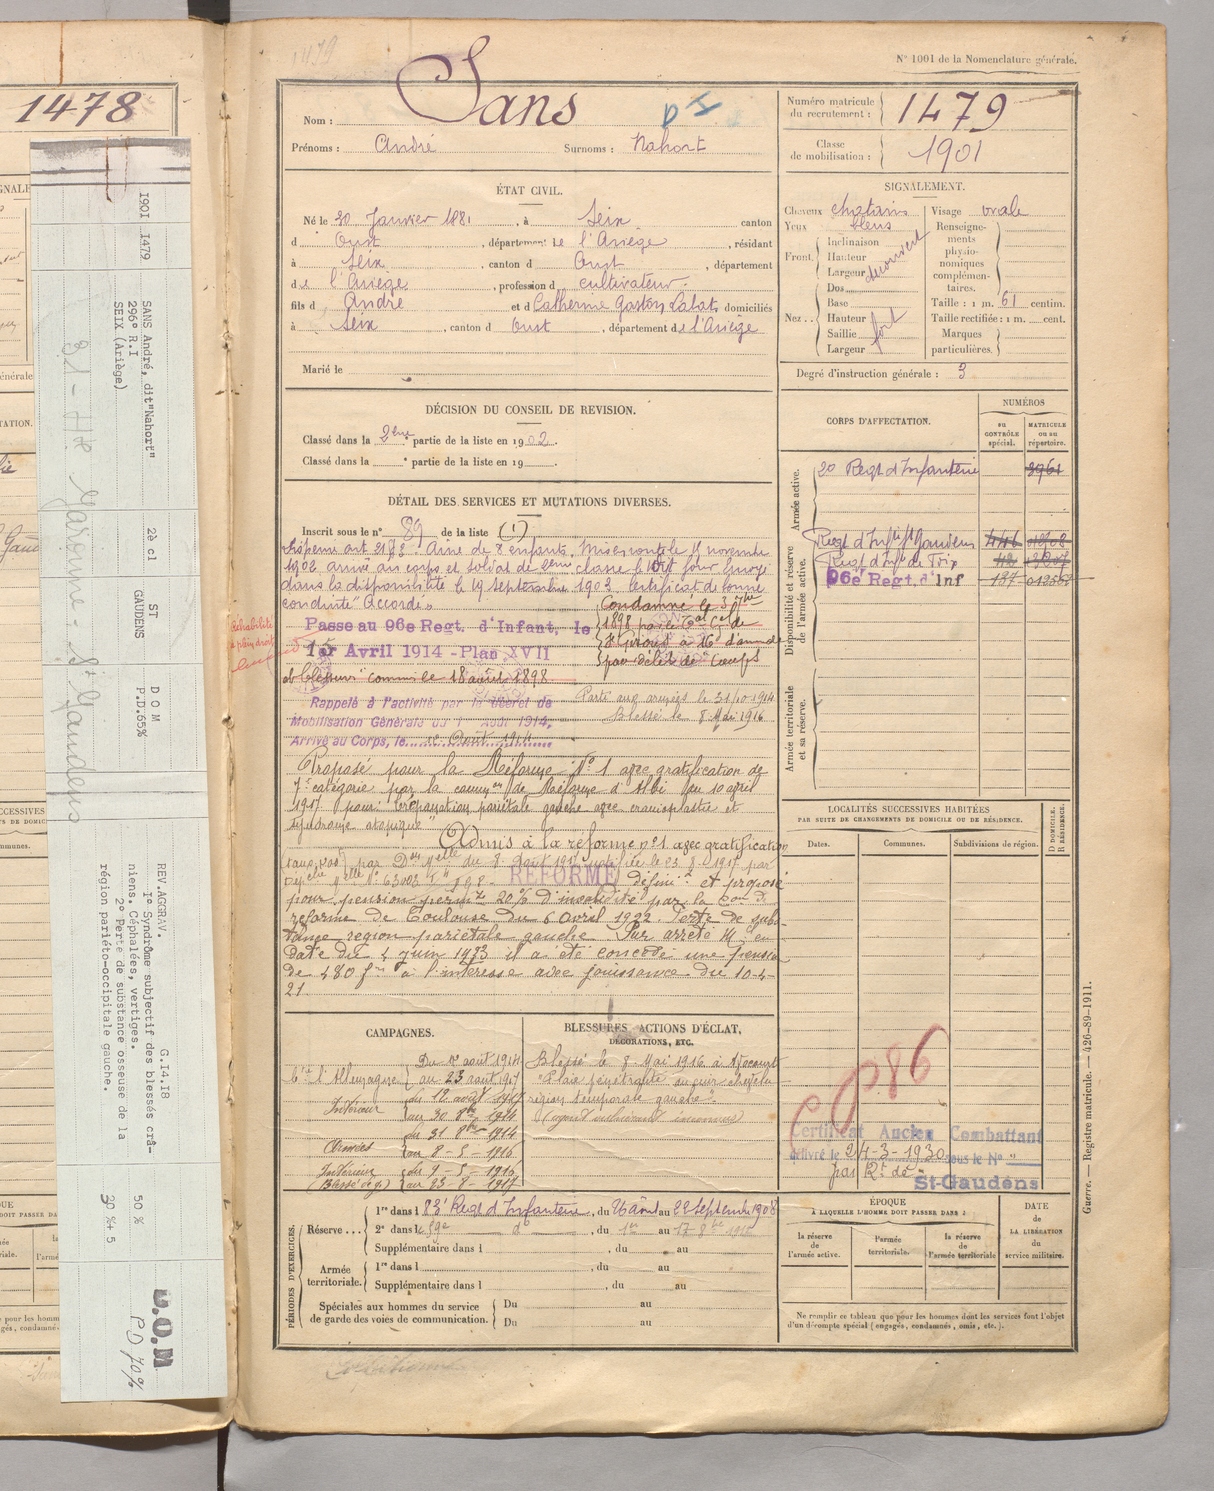 1478
1901 1479
SANS André, dit "Nahort"
296° R.I
SEIX (Ariège)
31 - Hte Garonne - St Gaudens
2è cl
ST
GAUDENS
D O M
P.D. 65%
REV. AGGRAV.
G.14.18
I° Syndrôme subjectif des blessés crâ-
niens. Céphalées, vertiges.
2° Perte de substance osseuse de la
région pariéto-occipitale gauche.
50 %
30 % + 5
D.O.M
PD 70%
1479
N° 1001 de la Nomenclature générale.
Nom : Sans
Prénoms : André Surnoms : Nahort
Numéro matricule du recrutement : 1479
Classe de mobilisation : 1901
ÉTAT CIVIL.
Né le 20 Janvier 1881, à Seix canton
d Oust, département de l'Ariège, résidant
à Seix, canton d Oust, département
de l'Ariège, profession d cultivateur
fils d André et d Catherine Gaston Lalat, domiciliés
à Seix, canton d Oust, département de l'Ariège
Marié le
SIGNALEMENT.
Cheveux chatains
Yeux bleus
Front. Inclinaison
Hauteur
Largeur
découvert
Nez.. Dos
Base
Hauteur
Saillie
Largeur
fort
Visage ovale
Renseignements physionomiques complémentaires.
Taille : 1 m. 61 centim.
Taille rectifiée : 1 m. cent.
Marques particulières.
Degré d'instruction générale : 3
DÉCISION DU CONSEIL DE REVISION.
Classé dans la 2ème partie de la liste en 1902.
Classé dans la e partie de la liste en 19 .
CORPS D'AFFECTATION.
NUMÉROS
au CONTRÔLE spécial.
MATRICULE ou au répertoire.
Armée active.
20 Regt d'Infanterie 3961
Disponibilité et réserve de l'armée active.
Regt d'Inftie St Gaudens
96e Regt. d'Inf
Armée territoriale et sa réserve.
DÉTAIL DES SERVICES ET MUTATIONS DIVERSES.
Inscrit sous le n° 89 de la liste (1)
Dispensé art. 21 § 2. Aîné de 8 enfants. Mis en route le 15 novembre
1902 arrivé au corps et soldat de 2ème classe le dit jour Envoyé
dans la disponibilité le 19 Septembre 1903. Certificat de bonne
conduite "Accordé"
Condamné le 3 7bre
1898
pour délit de Coups
Réhabilité
de plein droit
Passe au 96e Regt. d'Infant. le
1er Avril 1914 - Plan XVII
commis le 18 août 1898
Rappelé à l'activité par le décret de
Mobilisation Générale du 1 Août 1914,
Arrivé au Corps, le 12 Août 1914
Parti aux armées le 31/10 1914
Blessé le 8 Mai 1916
Proposé pour la Réforme N° 1 avec gratification de
7e catégorie par la common de Réforme d'Albi du 10 avril
1917 pour: trépanation pariétale gauche avec cranioplastie et
syndrome atopique"
Admis à la réforme n° 1 avec gratification
par Don Melle du 8 Août 1917 notifiée le 23-8-1917 par
N° 63003
REFORMÉ
définive et proposé
pour pension permte 20% d'invalidité par la Con de
réforme de Toulouse du 6 Avril 1922. Perte de subs-
tance région pariétale gauche. Par arrêté M. en
date du 4 Juin 1933 il a été concédé une pension
de 480 frs à l'intéressé avec jouissance du 10-4-
21.
LOCALITÉS SUCCESSIVES HABITÉES
PAR SUITE DE CHANGEMENTS DE DOMICILE OU DE RÉSIDENCE.
Dates.
Communes.
Subdivisions de région.
D DOMICILE. R RÉSIDENCE.
CAMPAGNES.
Ctre l'Allemagne Du 12 août 1914
au 23 août 1917
Intérieur du 12 août 1914
au 30 8bre 1914
Armées du 31 8bre 1914
au 8-5-1916
Intérieur du 9-5-1916
(Blessé de g.) au 23-8-1917
BLESSURES, ACTIONS D'ÉCLAT,
DÉCORATIONS, ETC.
Blessé le 8 Mai 1916 à
"Plaie pénétrante du cuir chevelu
région temporale gauche"
C 086
Certificat Ancien Combattant
délivré le 24-3-1930 sous le N° "
par Rt de
St-Gaudens
PÉRIODES D'EXERCICES.
Réserve... 1re dans l 83e Regt d'Infanterie, du 26 Août au 22 Septembre 1908
2e dans le 59e do, du 1er au 17 8bre
Supplémentaire dans l , du au
Armée territoriale. 1re dans l , du au
Supplémentaire dans l , du au
Spéciales aux hommes du service de garde des voies de communication. Du au
Du au
ÉPOQUE
À LAQUELLE L'HOMME DOIT PASSER DANS :
la réserve de l'armée active.
l'armée territoriale.
la réserve de l'armée territoriale
DATE de LA LIBÉRATION du service militaire.
Ne remplir ce tableau que pour les hommes dont les services font l'objet
d'un décompte spécial (engagés, condamnés, omis, etc.).
Guerre. — Registre matricule. — 426-89-1911.